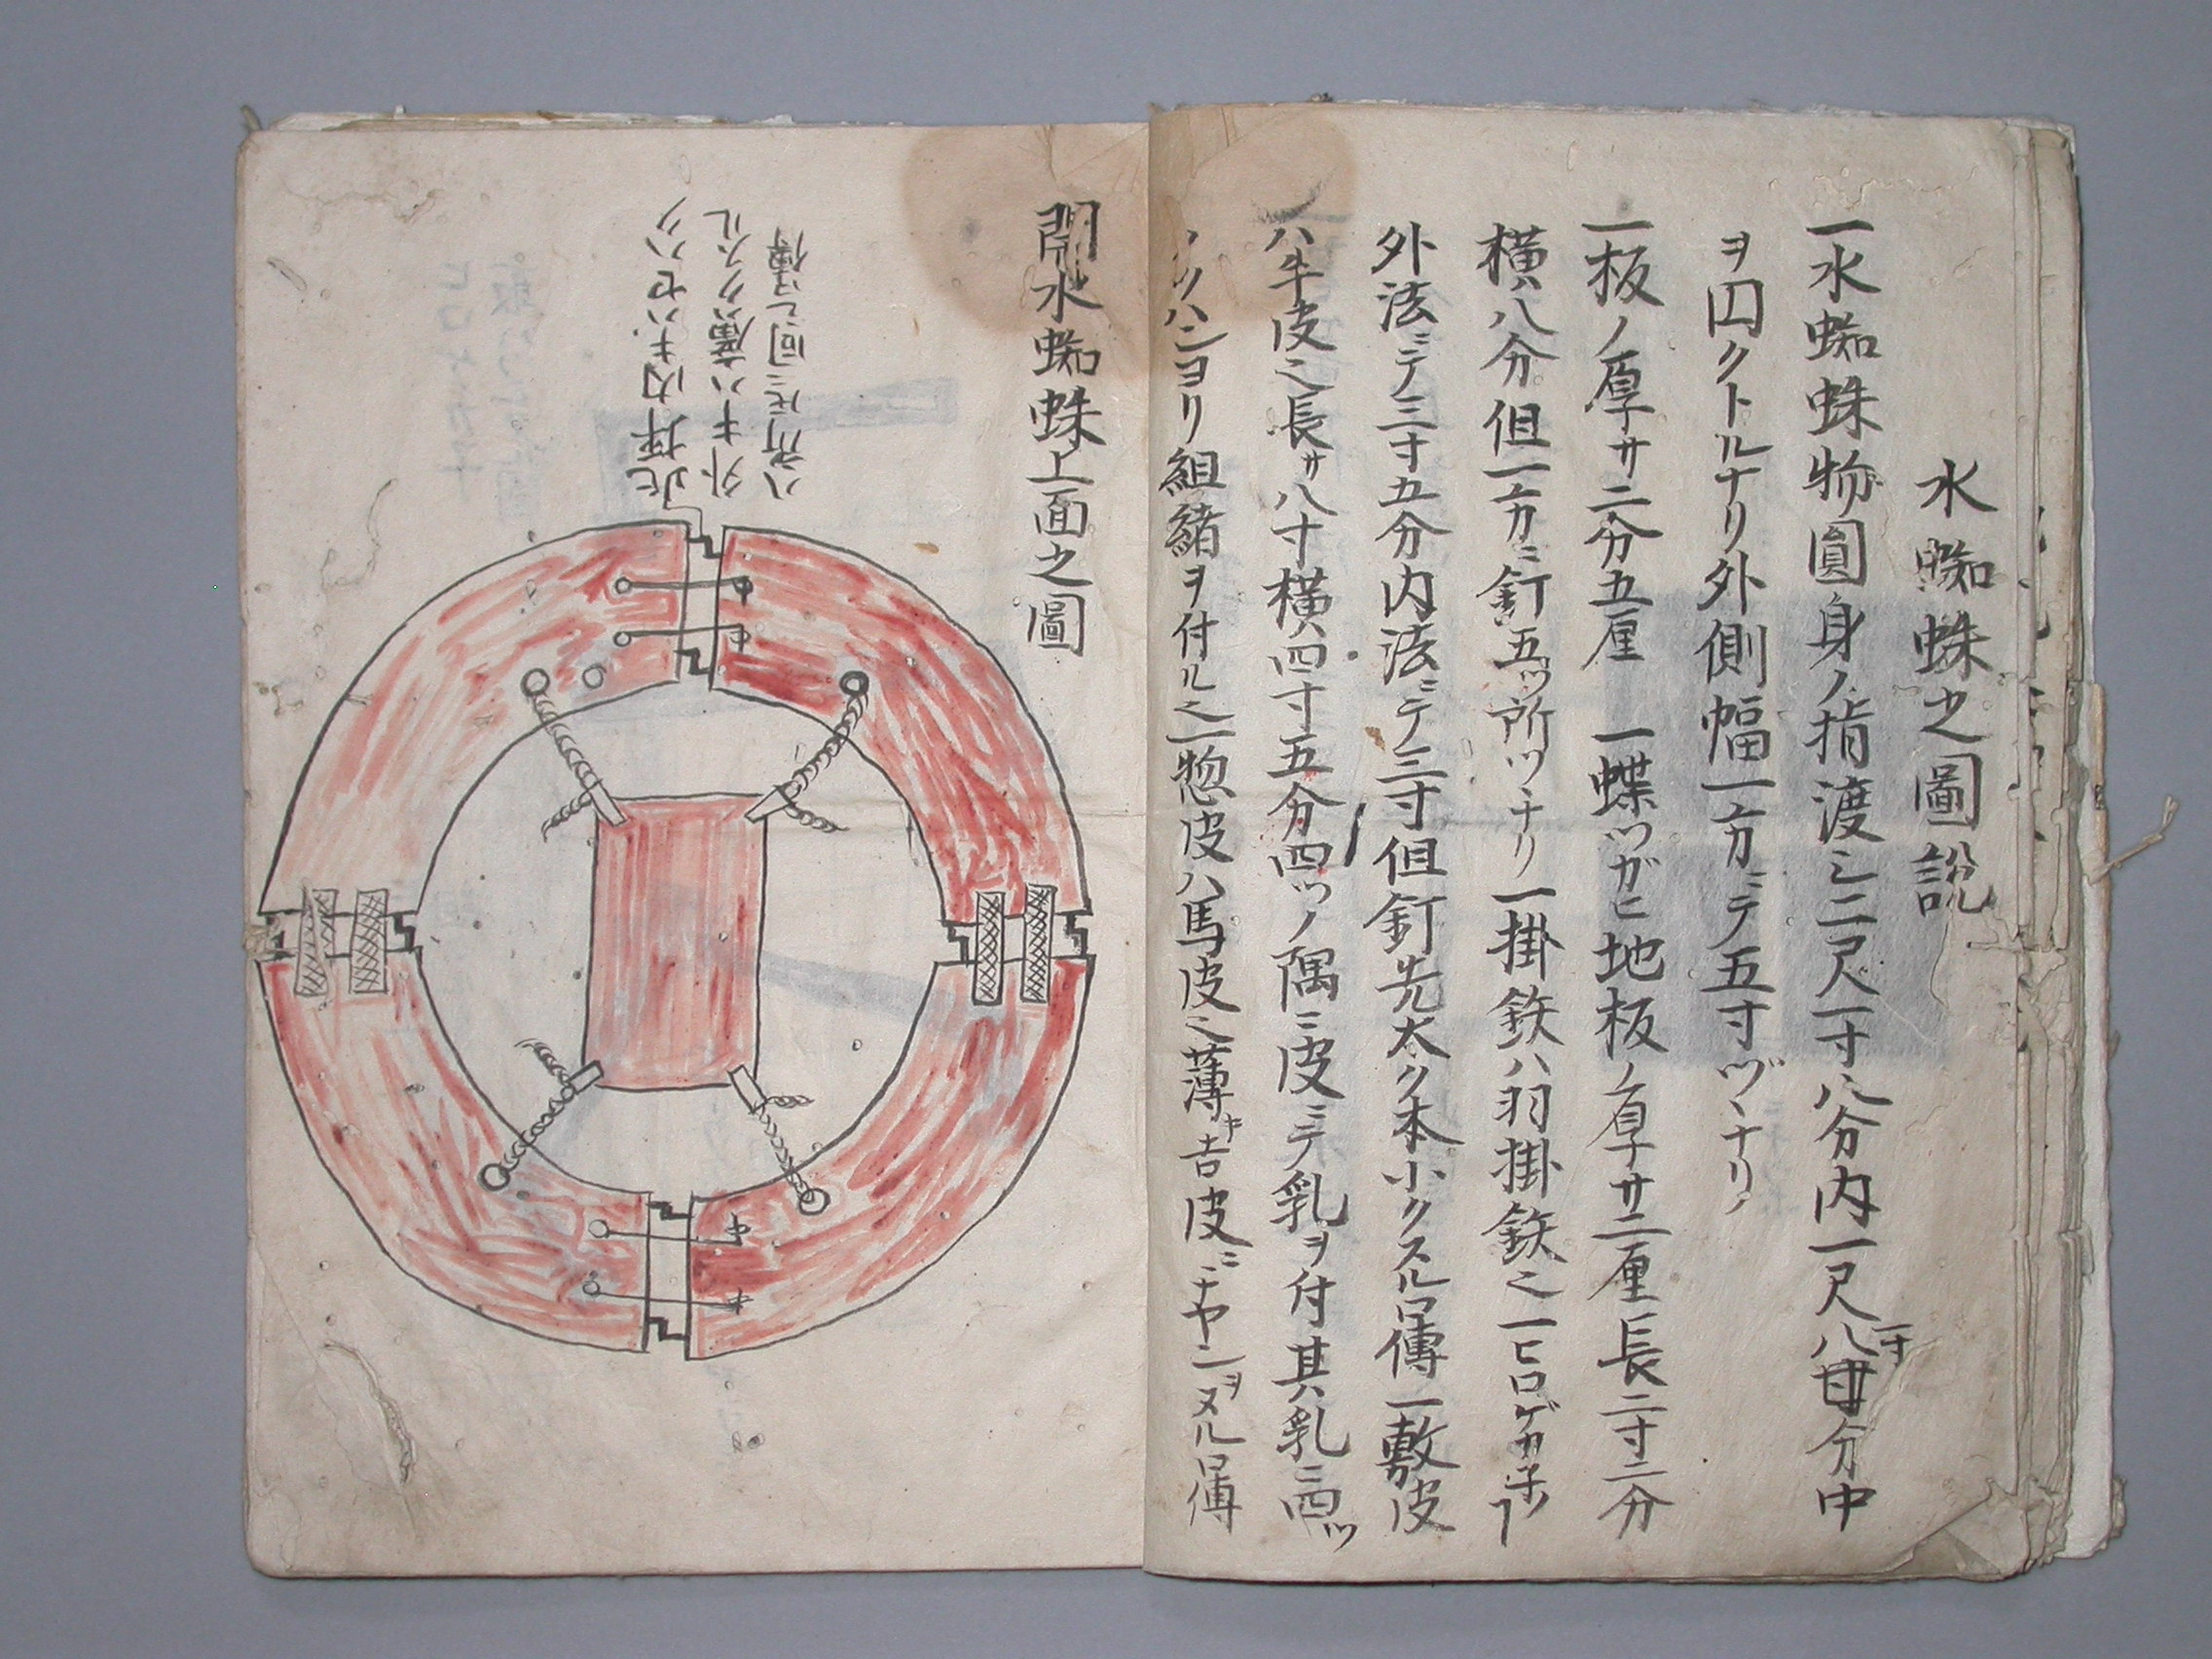 水蜘蛛之圖説
一水蜘蛛物圓身ノ指渡シ二尺一寸八分内一尺八寸分中
ヲ囗クトルナリ外側幅一方ニテ五寸ヅヽナリ
一板ノ厚サ二分五厘 一蝶ツガヒ地板ノ厚サ二厘長二寸二分
横八分但一方ニ釘五ツ所ツヽナリ一掛鉄ハ羽掛鉄之一ヒロゲカ子ノ
外法ニテ三寸五分内法ニテ三寸但釘先太ク本小クスル口傳一敷皮
ハ牛皮之長サ八寸横四寸五分四ツノ隅ニ皮ニテ乳ヲ付其乳ニ四ツ
ノクハンヨリ組緒ヲ付ル之一惣皮ハ馬皮之薄キ吉皮ニチヤンヲヌル口傳
開水蜘蛛上面之圖
此坪内キハセハク
外キハ廣クスル
ハ希ルニ同之傳